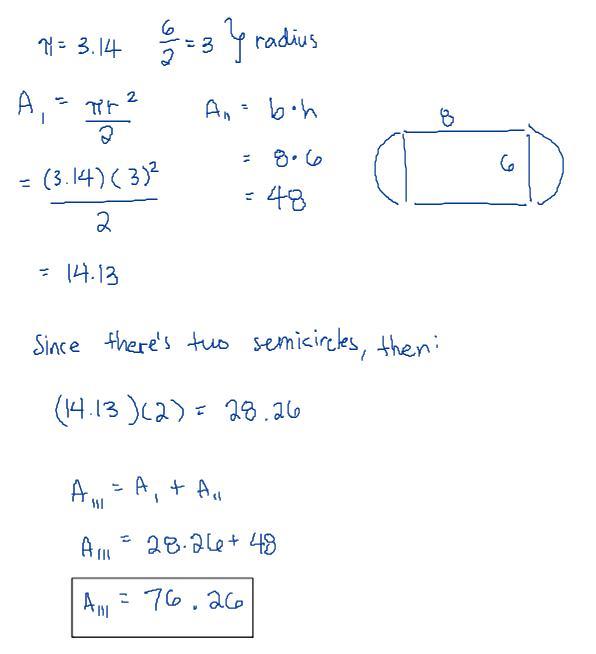 π = 3.14   6/2 = 3 } radius
A₁ = πr²/2
= (3.14)(3)²/2
= 14.13
A₁₁ = b·h
= 8·6
= 48
8
6
Since there's two semicircles, then:
(14.13)(2) = 28.26
A₁₁₁ = A₁ + A₁₁
A₁₁₁ = 28.26 + 48
A₁₁₁ = 76.26